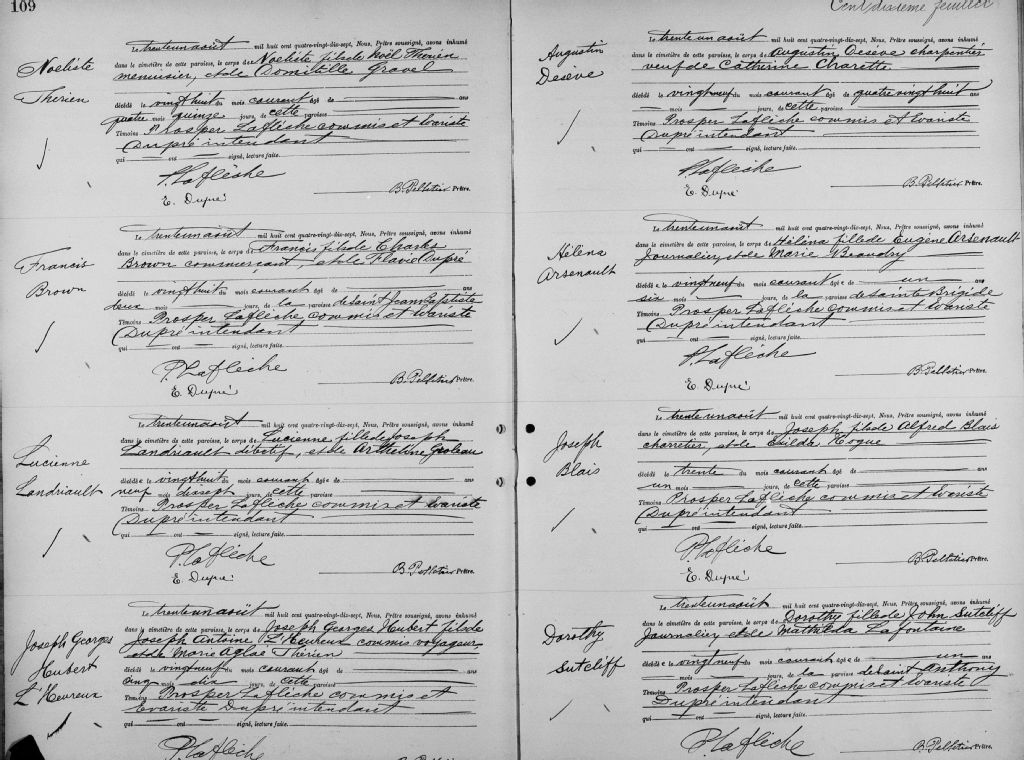 109
Noeliste
Therien
Le trente un août mil huit cent quatre-vingt-dix-sept, Nous, Prêtre soussigné, avons inhumé
dans le cimetière de cette paroisse, le corps de Noëliste fils de Noël Therien
menuisier, et de Domitille Gravel
décédé le vingt huit du mois courant âgé de ans
quatre mois quinze jours, de cette paroisse
Témoins Prosper Laflèche commis et Evariste
Dupré intendant
qui ont signé, lecture faite.
P. Laflèche
E. Dupré
B. Pelletier Prêtre.
Francis
Brown
Le trente un août mil huit cent quatre-vingt-dix-sept, Nous, Prêtre soussigné, avons inhumé
dans le cimetière de cette paroisse, le corps de Francis fils de Charles
Brown commerçant, et de Flavie Dupré
décédé le vingt huit du mois courant âgé de ans
deux mois jours, de la paroisse de saint Jean Baptiste
Témoins Prosper Laflèche commis et Evariste
Dupré intendant
qui ont signé, lecture faite.
P. Laflèche
E. Dupré
B. Pelletier Prêtre.
Lucienne
Landriault
Le trente un août mil huit cent quatre-vingt-dix-sept, Nous, Prêtre soussigné, avons inhumé
dans le cimetière de cette paroisse, le corps de Lucienne fille de Joseph
Landriault et de Arthéline Groleau
décédé e le vingt huit du mois courant âgé e de ans
neuf mois dix sept jours, de cette paroisse
Témoins Prosper Laflèche commis et Evariste
Dupré intendant
qui ont signé, lecture faite.
P. Laflèche
E. Dupré
B. Pelletier Prêtre.
Joseph Georges
Hubert
L'Heureux
Le trente un août mil huit cent quatre-vingt-dix-sept, Nous, Prêtre soussigné, avons inhumé
dans le cimetière de cette paroisse, le corps de Joseph Georges Hubert fils de
Joseph Antoine L'Heureux commis voyageur
et de Marie Aglaé Thérien
décédé le vingt neuf du mois courant âgé de ans
cinq mois dix jours, de cette paroisse
Témoins Prosper Laflèche commis et
Evariste Dupré intendant
qui ont signé, lecture faite.
P. Laflèche
B. Pelletier
Cent dixième feuillet
Augustin
Desève
Le trente un août mil huit cent quatre-vingt-dix-sept, Nous, Prêtre soussigné, avons inhumé
dans le cimetière de cette paroisse, le corps de Augustin Desève charpentier
veuf de Catherine Charette
décédé le vingt neuf du mois courant âgé de quatre vingt huit ans
mois jours, de cette paroisse
Témoins Prosper Laflèche commis et Evariste
Dupré intendant
qui ont signé, lecture faite.
P. Laflèche
E. Dupré
B. Pelletier Prêtre.
Héléna
Arsenault
Le trente un août mil huit cent quatre-vingt-dix-sept, Nous, Prêtre soussigné, avons inhumé
dans le cimetière de cette paroisse, le corps de Héléna fille de Eugène Arsenault
Journalier et de Marie Beaudry
décédé e le vingt neuf du mois courant âgé e de un ans
six mois jours, de la paroisse de sainte Brigide
Témoins Prosper Laflèche commis et Evariste
Dupré intendant
qui ont signé, lecture faite.
P. Laflèche
E. Dupré
B. Pelletier Prêtre.
Joseph
Blais
Le trente un août mil huit cent quatre-vingt-dix-sept, Nous, Prêtre soussigné, avons inhumé
dans le cimetière de cette paroisse, le corps de Joseph fils de Alfred Blais
charretier, et de Exilda Hogue
décédé le trente du mois courant âgé de ans
un mois jours, de cette paroisse
Témoins Prosper Laflèche commis et Evariste
Dupré intendant
qui ont signé, lecture faite.
P. Laflèche
E. Dupré
B. Pelletier Prêtre.
Dorothy
Sutcliff
Le trente un août mil huit cent quatre-vingt-dix-sept, Nous, Prêtre soussigné, avons inhumé
dans le cimetière de cette paroisse, le corps de Dorothy fille de John Sutcliff
Journalier et de Mathilda Lafontaine
décédé e le vingt neuf du mois courant âgé e de un ans
mois jours, de la paroisse de saint Anthony
Témoins Prosper Laflèche commis et Evariste
Dupré intendant
qui ont signé, lecture faite.
P. Laflèche
B. Pelletier Prêtre.